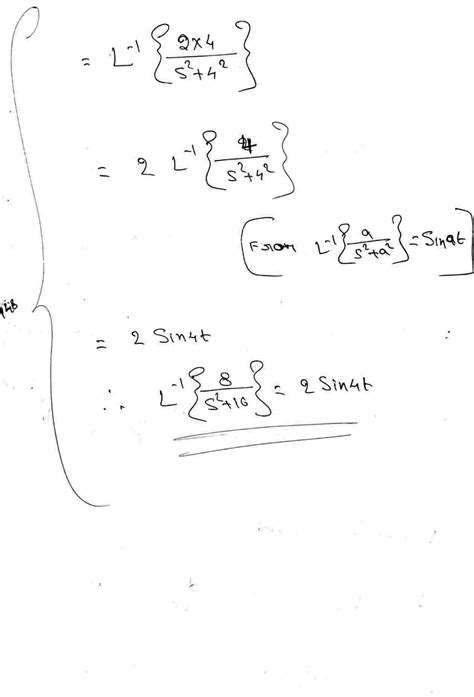 = L⁻¹ { 2×4 / s²+4² }
= 2 L⁻¹ { 4 / s²+4² }
[From L⁻¹ { a / s²+a² } = Sin at]
= 2 Sin4t
∴ L⁻¹ { 8 / s²+16 } = 2 Sin4t